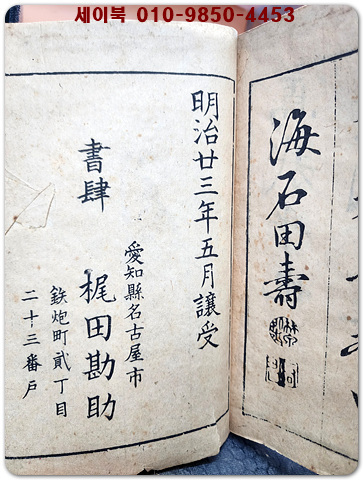 세이북 010-9850-4453
海石田壽
明治廿三年五月譲受
愛知縣名古屋市
鉄炮町貳丁目
二十三番戸
書肆 梶田勘助